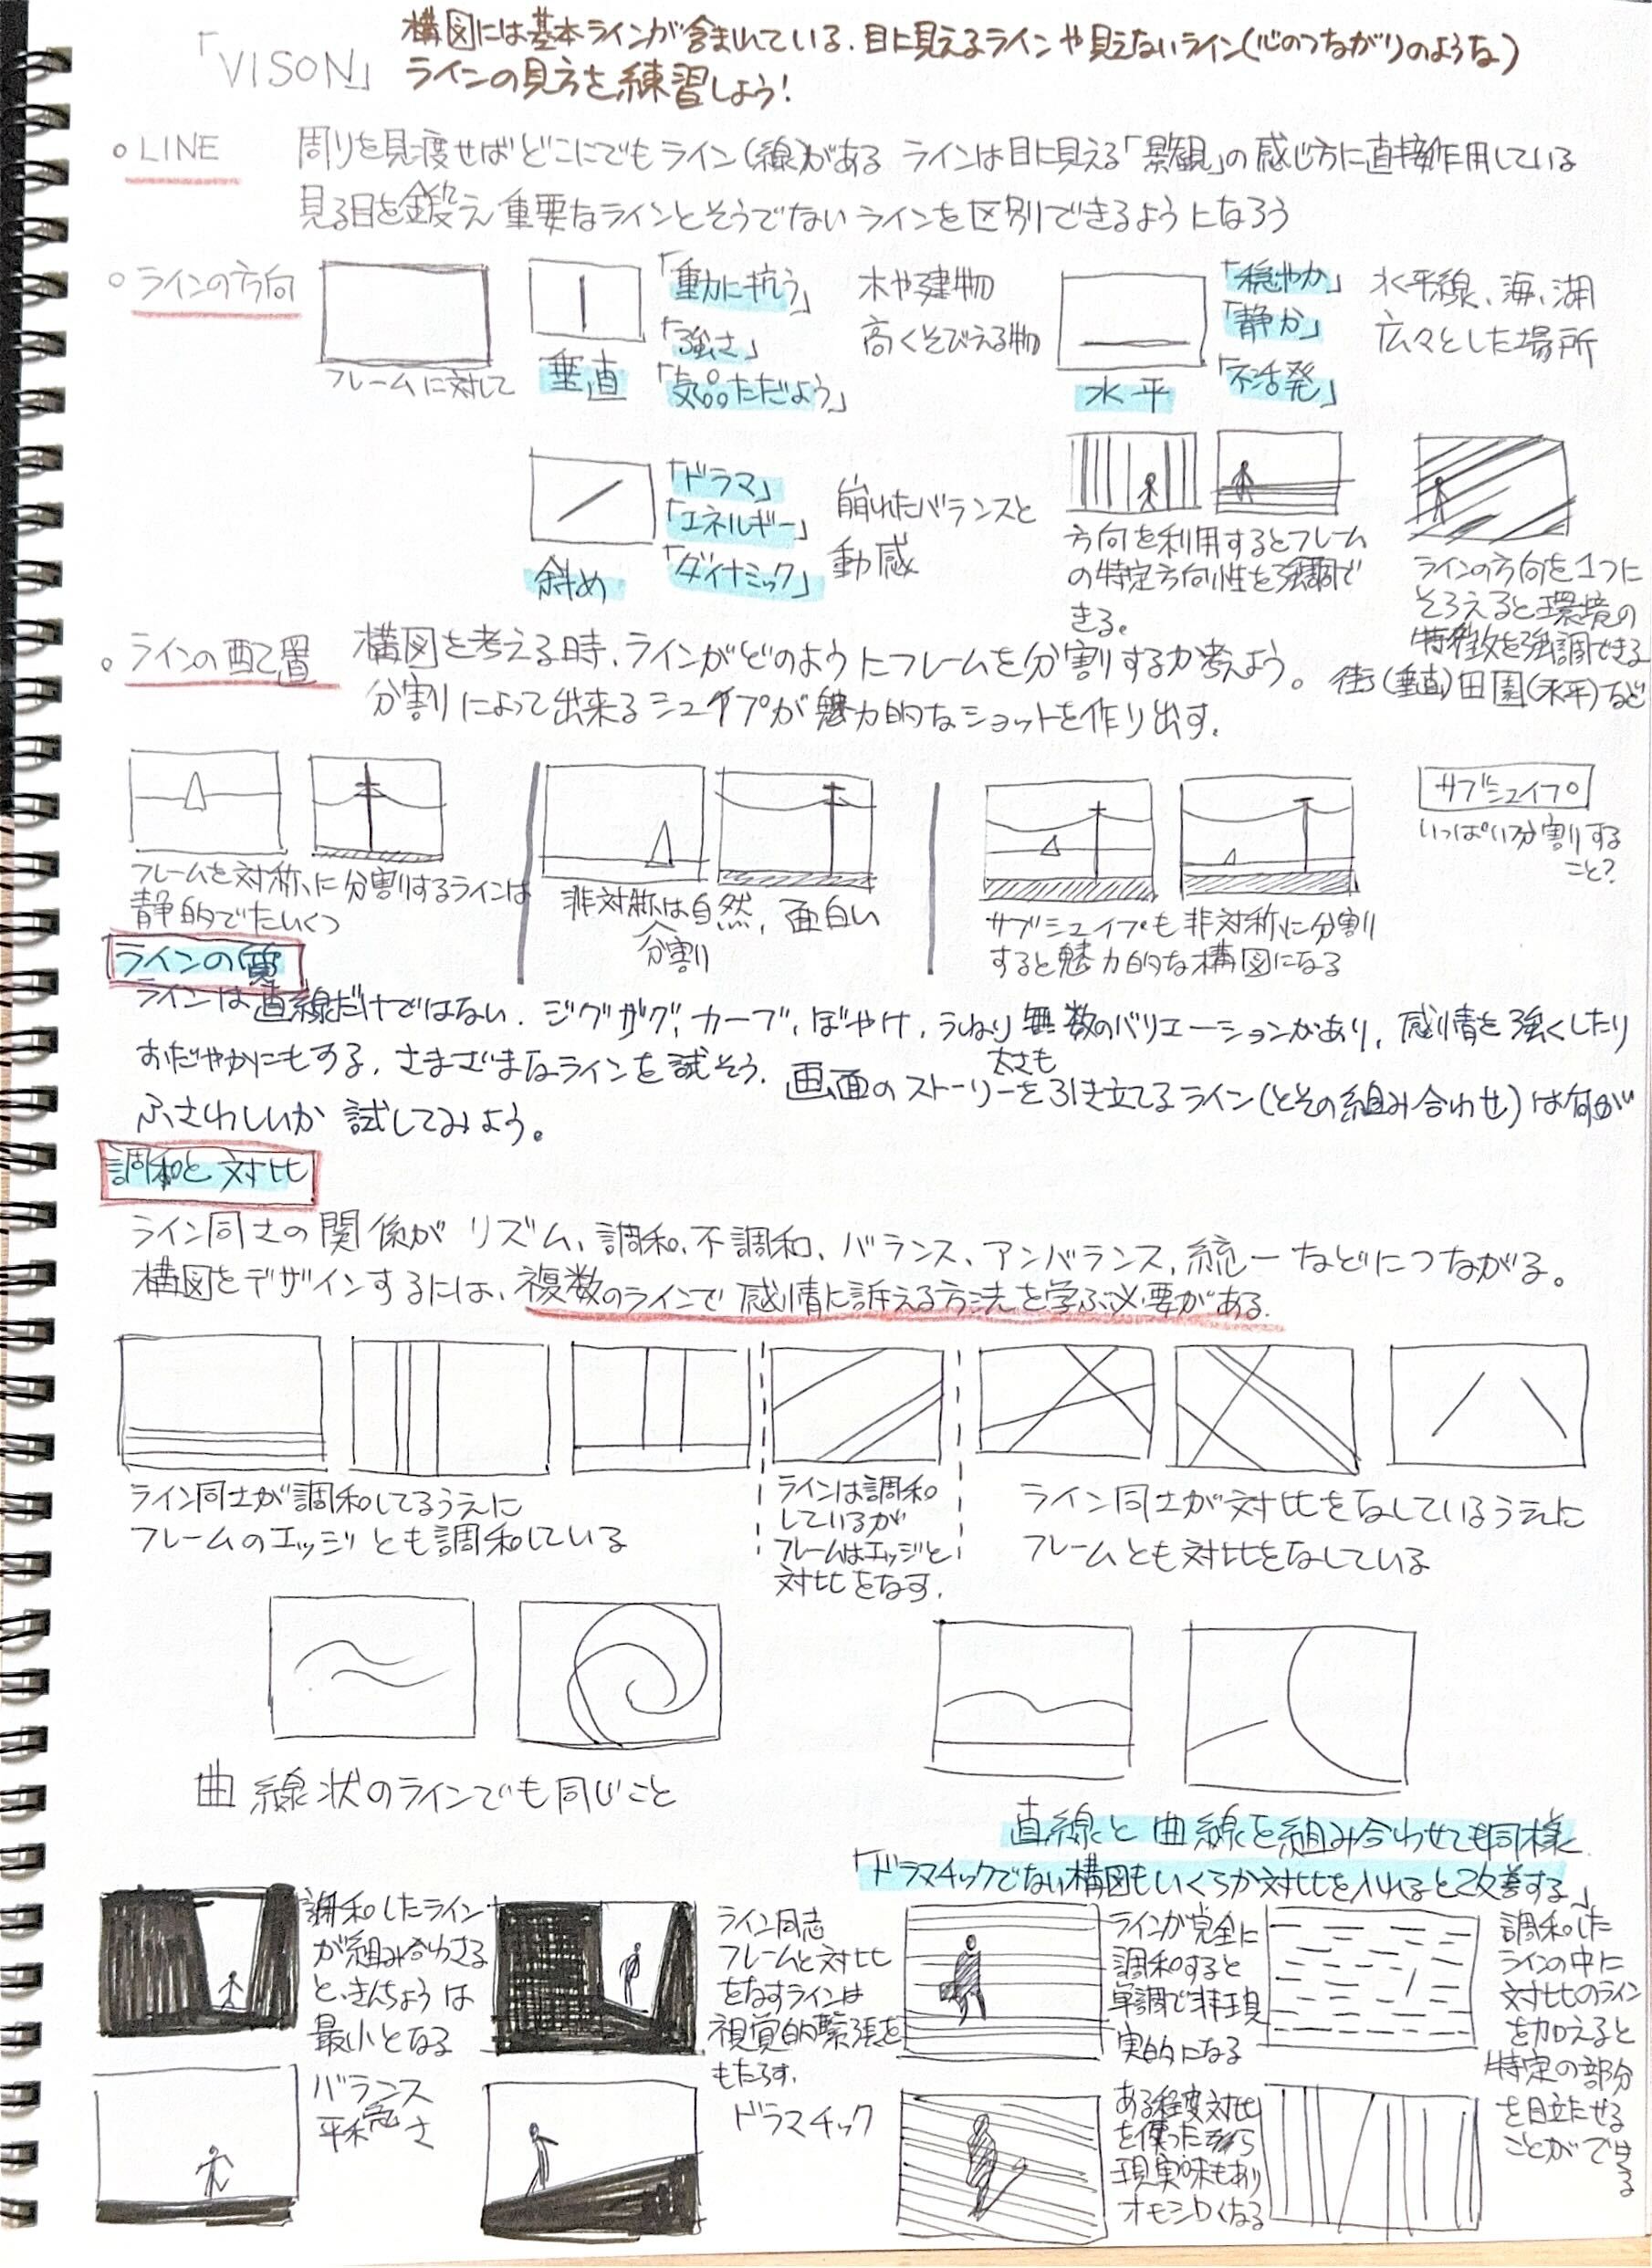 「VISON」
構図には基本ラインが含まれている.目に見えるラインや見えないライン(心のつながりのような)
ラインの見方を練習しよう!
LINE
周りを見渡せばどこにでもライン(線)がある ラインは目に見える「景観」の感じ方に直接作用している
見る目を鍛え重要なラインとそうでないラインを区別できるようになろう
ラインの方向
フレームに対して
垂直
「重力に抗う」
「強さ」
「気品ただよう」
木や建物
高くそびえる物
水平
「穏やか」
「静か」
「不活発」
水平線、海、湖
広々とした場所
斜め
「ドラマ」
「エネルギー」
「ダイナミック」
崩れたバランスと
動感
方向を利用するとフレーム
の特定方向性を強調で
きる。
ラインの方向を1つに
そろえると環境の
特徴を強調できる
街(垂直)田園(水平)など
ラインの配置
構図を考える時、ラインがどのようにフレームを分割するか考えよう。
分割によって出来るシェイプが魅力的なショットを作り出す.
フレームを対称に分割するラインは
静的でたいくつ
非対称は自然,面白い
分割
サブシェイプも非対称に分割
すると魅力的な構図になる
サブシェイプ
いっぱい分割する
こと?
ラインの質
ラインは直線だけではない.ジグザグ,カーブ,ぼやけ,うねり無数のバリエーションがあり,感情を強くしたり
太さも
おだやかにもする,さまざまなラインを試そう.画面のストーリーを引き立てるライン(とその組み合わせ)は何が
ふさわしいか試してみよう。
調和と対比
ライン同士の関係がリズム、調和、不調和、バランス、アンバランス,統一などにつながる。
構図をデザインするには、複数のラインで感情に訴える方法を学ぶ必要がある.
ライン同士が調和してるうえに
フレームのエッジとも調和している
ラインは調和
しているが
フレームはエッジと
対比をなす.
ライン同士が対比をなしているうえに
フレームとも対比をなしている
曲線状のラインでも同じこと
直線と曲線を組み合わせても同様
「ドラマチックでない構図もいくらか対比を入れると改善する」
調和したライン
が組み合わさる
と、きんちょうは
最小となる
バランス
平和さ
ライン同志
フレームと対比
をなすラインは
視覚的緊張を
もたらす.
ドラマチック
ラインが完全に
調和すると
単調で非現
実的になる
ある程度対比
を使ったら
現実味もあり
オモシロくなる
調和した
ラインの中に
対比のライン
を加えると
特定の部分
を目立たせる
ことができる